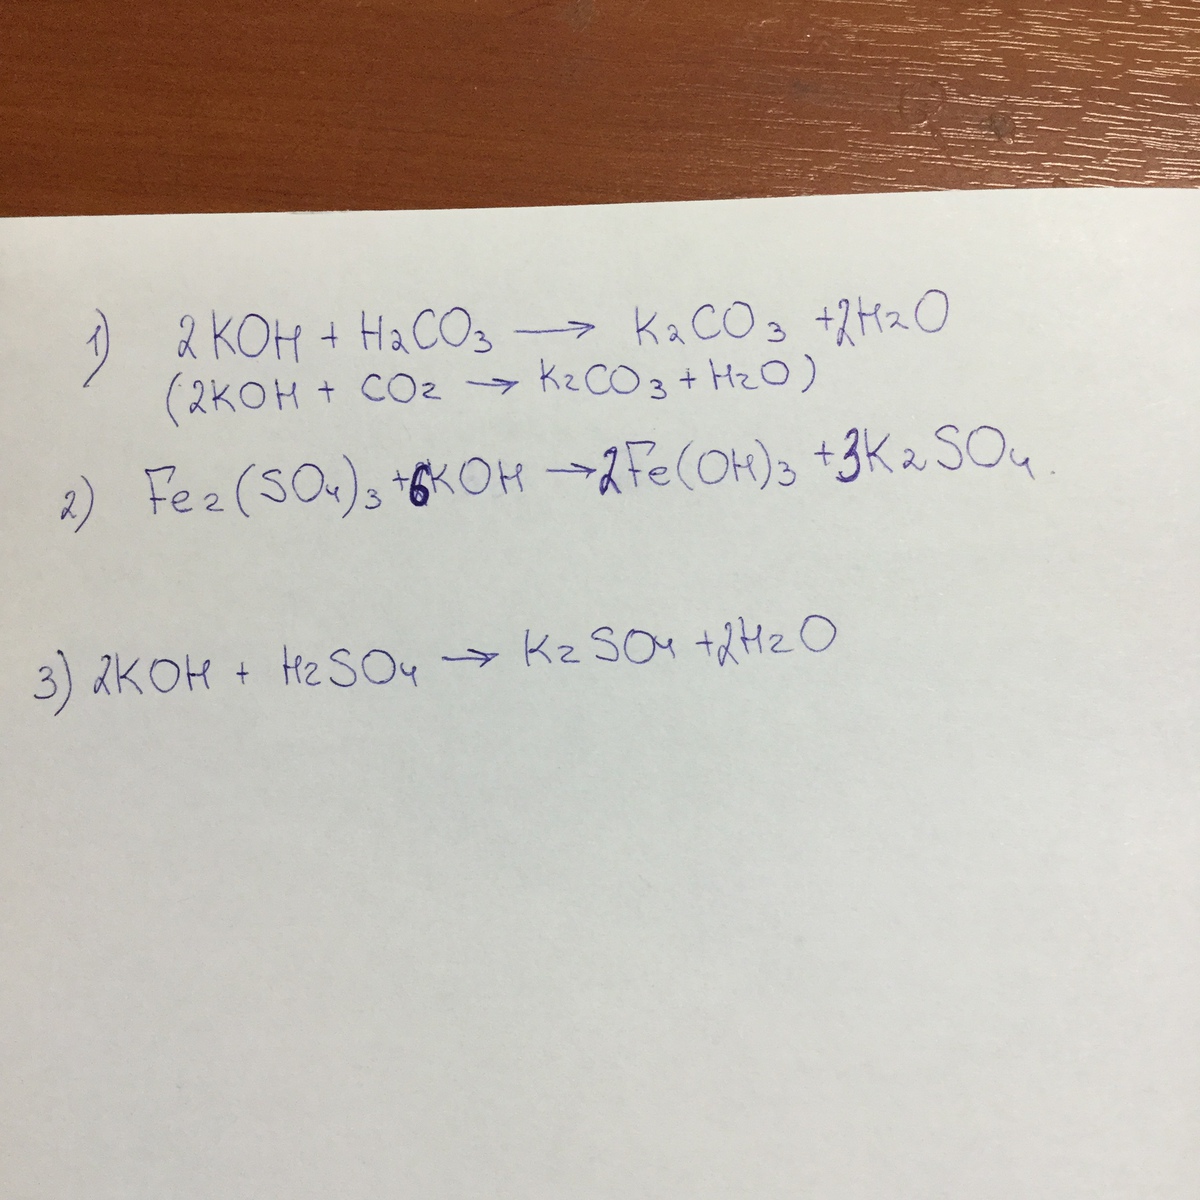 1) 2KOH + H2CO3 → K2CO3 +2H2O
(2KOH + CO2 → K2CO3 + H2O)
2) Fe2(SO4)3 +6KOH → 2Fe(OH)3 +3K2SO4.
3) 2KOH + H2SO4 → K2SO4 +2H2O